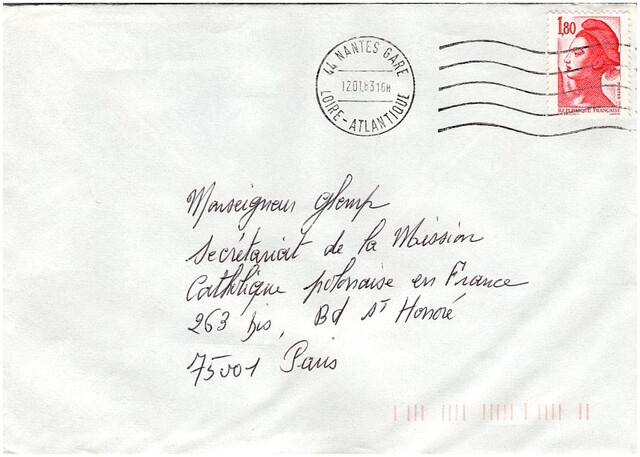 1,80
RÉPUBLIQUE FRANÇAISE
44 NANTES GARE
12.01.83 16H
LOIRE-ATLANTIQUE
Monseigneur Glemp
Secrétariat de la Mission
Catholique polonaise en France
263 bis, Bd St Honoré
75001 Paris